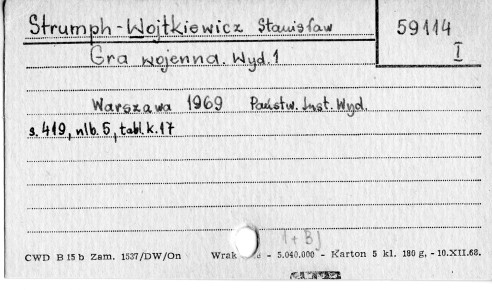 Strumph-Wojtkiewicz Stanisław
59114
I
Gra wojenna. Wyd. 1
Warszawa 1969 Państw. Inst. Wyd.
s. 419, nlb. 5, tabl. k. 17
1 + BJ
CWD B 15 b Zam. 1537/DW/On - 5.040.000 - Karton 5 kl. 180 g. - 10.XII.68.